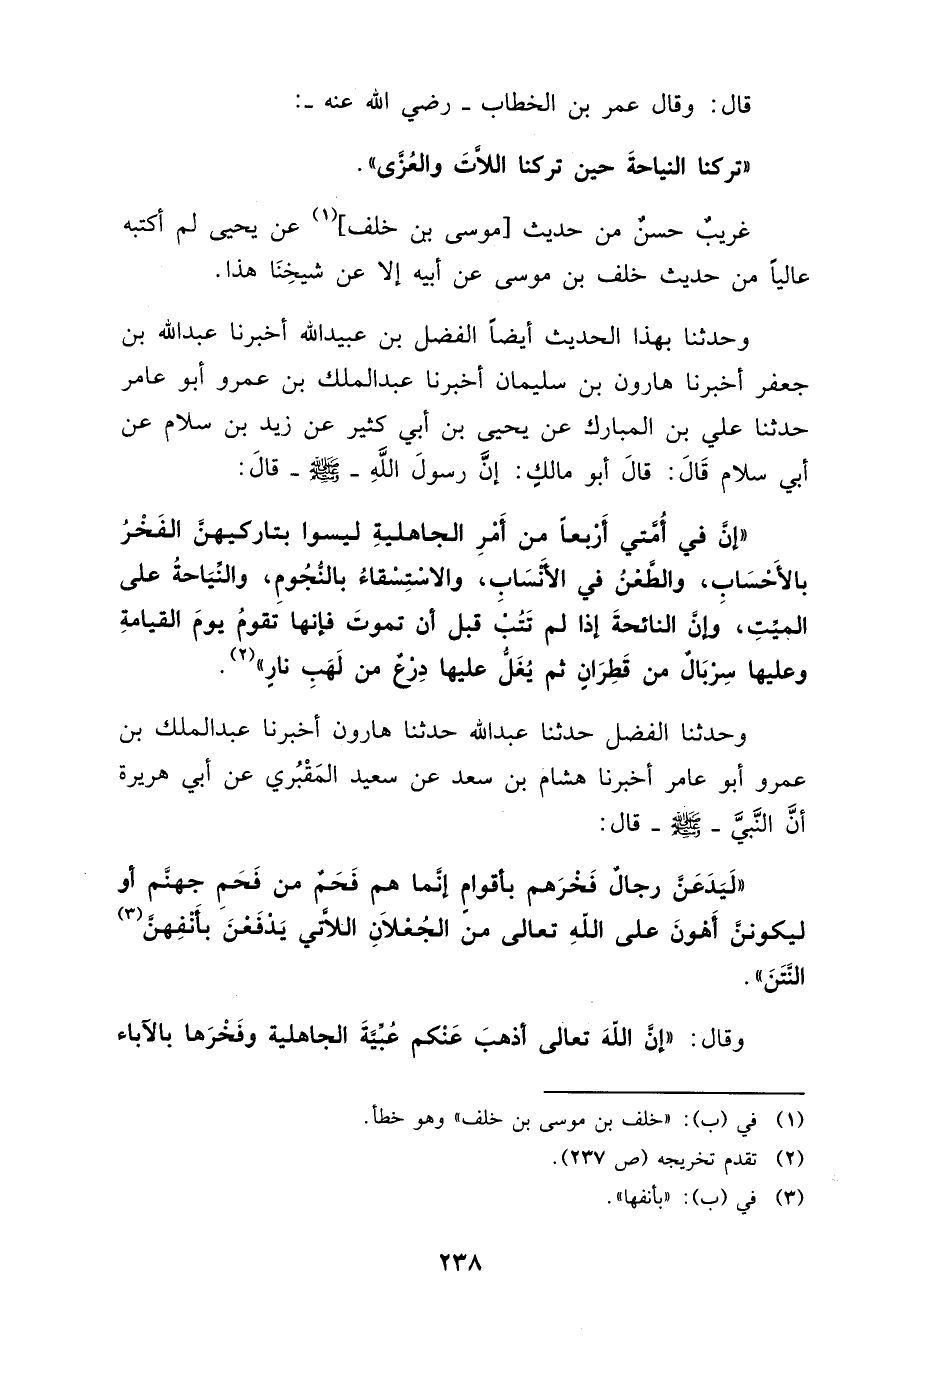 قال: وقال عمر بن الخطاب ـ رضي الله عنه ـ:
«تركنا النياحةَ حين تركنا اللاَّتَ والعُزَّى».
غريبٌ حسنٌ من حديث [موسى بن خلف](١) عن يحيى لم أكتبه
عالياً من حديث خلف بن موسى عن أبيه إلا عن شيخِنَا هذا.
وحدثنا بهذا الحديث أيضاً الفضل بن عبيدالله أخبرنا عبدالله بن
جعفر أخبرنا هارون بن سليمان أخبرنا عبدالملك بن عمرو أبو عامر
حدثنا علي بن المبارك عن يحيى بن أبي كثير عن زيد بن سلام عن
أبي سلام قَالَ: قالَ أبو مالكٍ: إنَّ رسولَ اللَّهِ ـ ﷺ ـ قالَ:
«إنَّ في أُمَّتي أَرْبعاً من أَمْرِ الجاهليةِ ليسوا بتاركيهنَّ الفَخْرُ
بالأَحْسَابِ، والطَّعْنُ في الأَنْسَابِ، والاسْتِسْقاءُ بالنُّجُومِ، والنِّيَاحةُ على
الميِّتِ، وإنَّ النائحةَ إذا لم تَتُبْ قبل أن تموتَ فإنها تقومُ يومَ القيامةِ
وعليها سِرْبَالٌ من قَطِرَانٍ ثم يُغَلُّ عليها دِرْعٌ من لَهَبِ نارٍ»(٢).
وحدثنا الفضل حدثنا عبدالله حدثنا هارون أخبرنا عبدالملك بن
عمرو أبو عامر أخبرنا هشام بن سعد عن سعيد المَقْبُري عن أبي هريرة
أنَّ النَّبيَّ ـ ﷺ ـ قال:
«لَيَدَعَنَّ رجالٌ فَخْرَهم بأقوامٍ إنَّما هم فَحَمٌ من فَحَمِ جهنَّم أو
ليكوننَّ أَهْونَ على اللّهِ تعالى من الجُعْلاَنِ اللاَّتي يَدْفَعْنَ بأَنْفِهنَّ(٣)
النَّتَنَ».
وقال: «إنَّ اللّهَ تعالى أذهبَ عَنْكم عُبِّيَّةَ الجاهلية وفَخْرَها بالآباء
(١) في (ب): «خلف بن موسى بن خلف» وهو خطأ.
(٢) تقدم تخريجه (ص ٢٣٧).
(٣) في (ب): «بأنفها».
٢٣٨